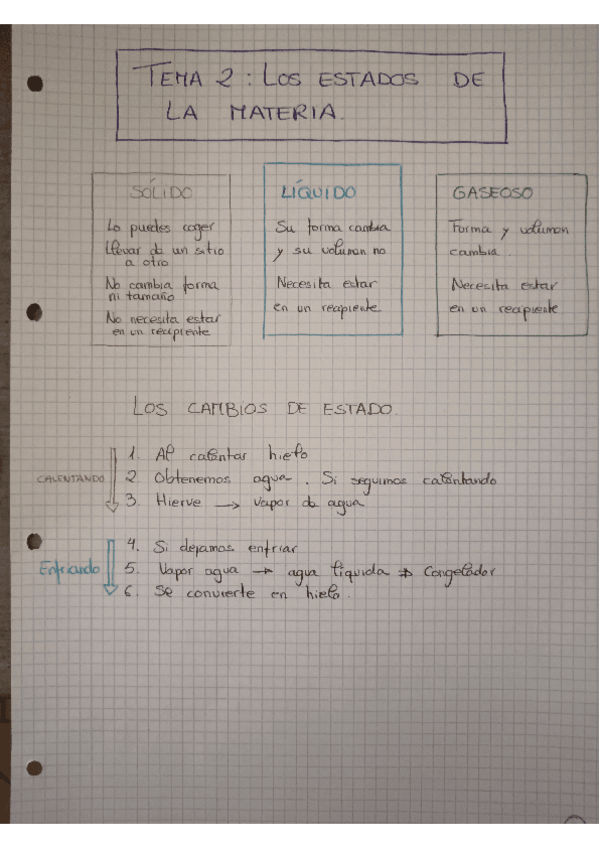 TEMA 2 : LOS ESTADOS DE
LA MATERIA.
SÓLIDO
Lo puedes coger
llevar de un sitio
a otro
No cambia forma
ni tamaño
No necesita estar
en un recipiente
LÍQUIDO
Su forma cambia
y su volumen no
Necesita estar
en un recipiente
GASEOSO
Forma y volumen
cambia.
Necesita estar
en un recipiente
LOS CAMBIOS DE ESTADO.
CALENTANDO
1. Al calentar hielo
2. Obtenemos agua. Si seguimos calentando
3. Hierve → Vapor de agua
Enfriando
4. Si dejamos enfriar
5. Vapor agua → agua líquida → Congelador
6. Se convierte en hielo.